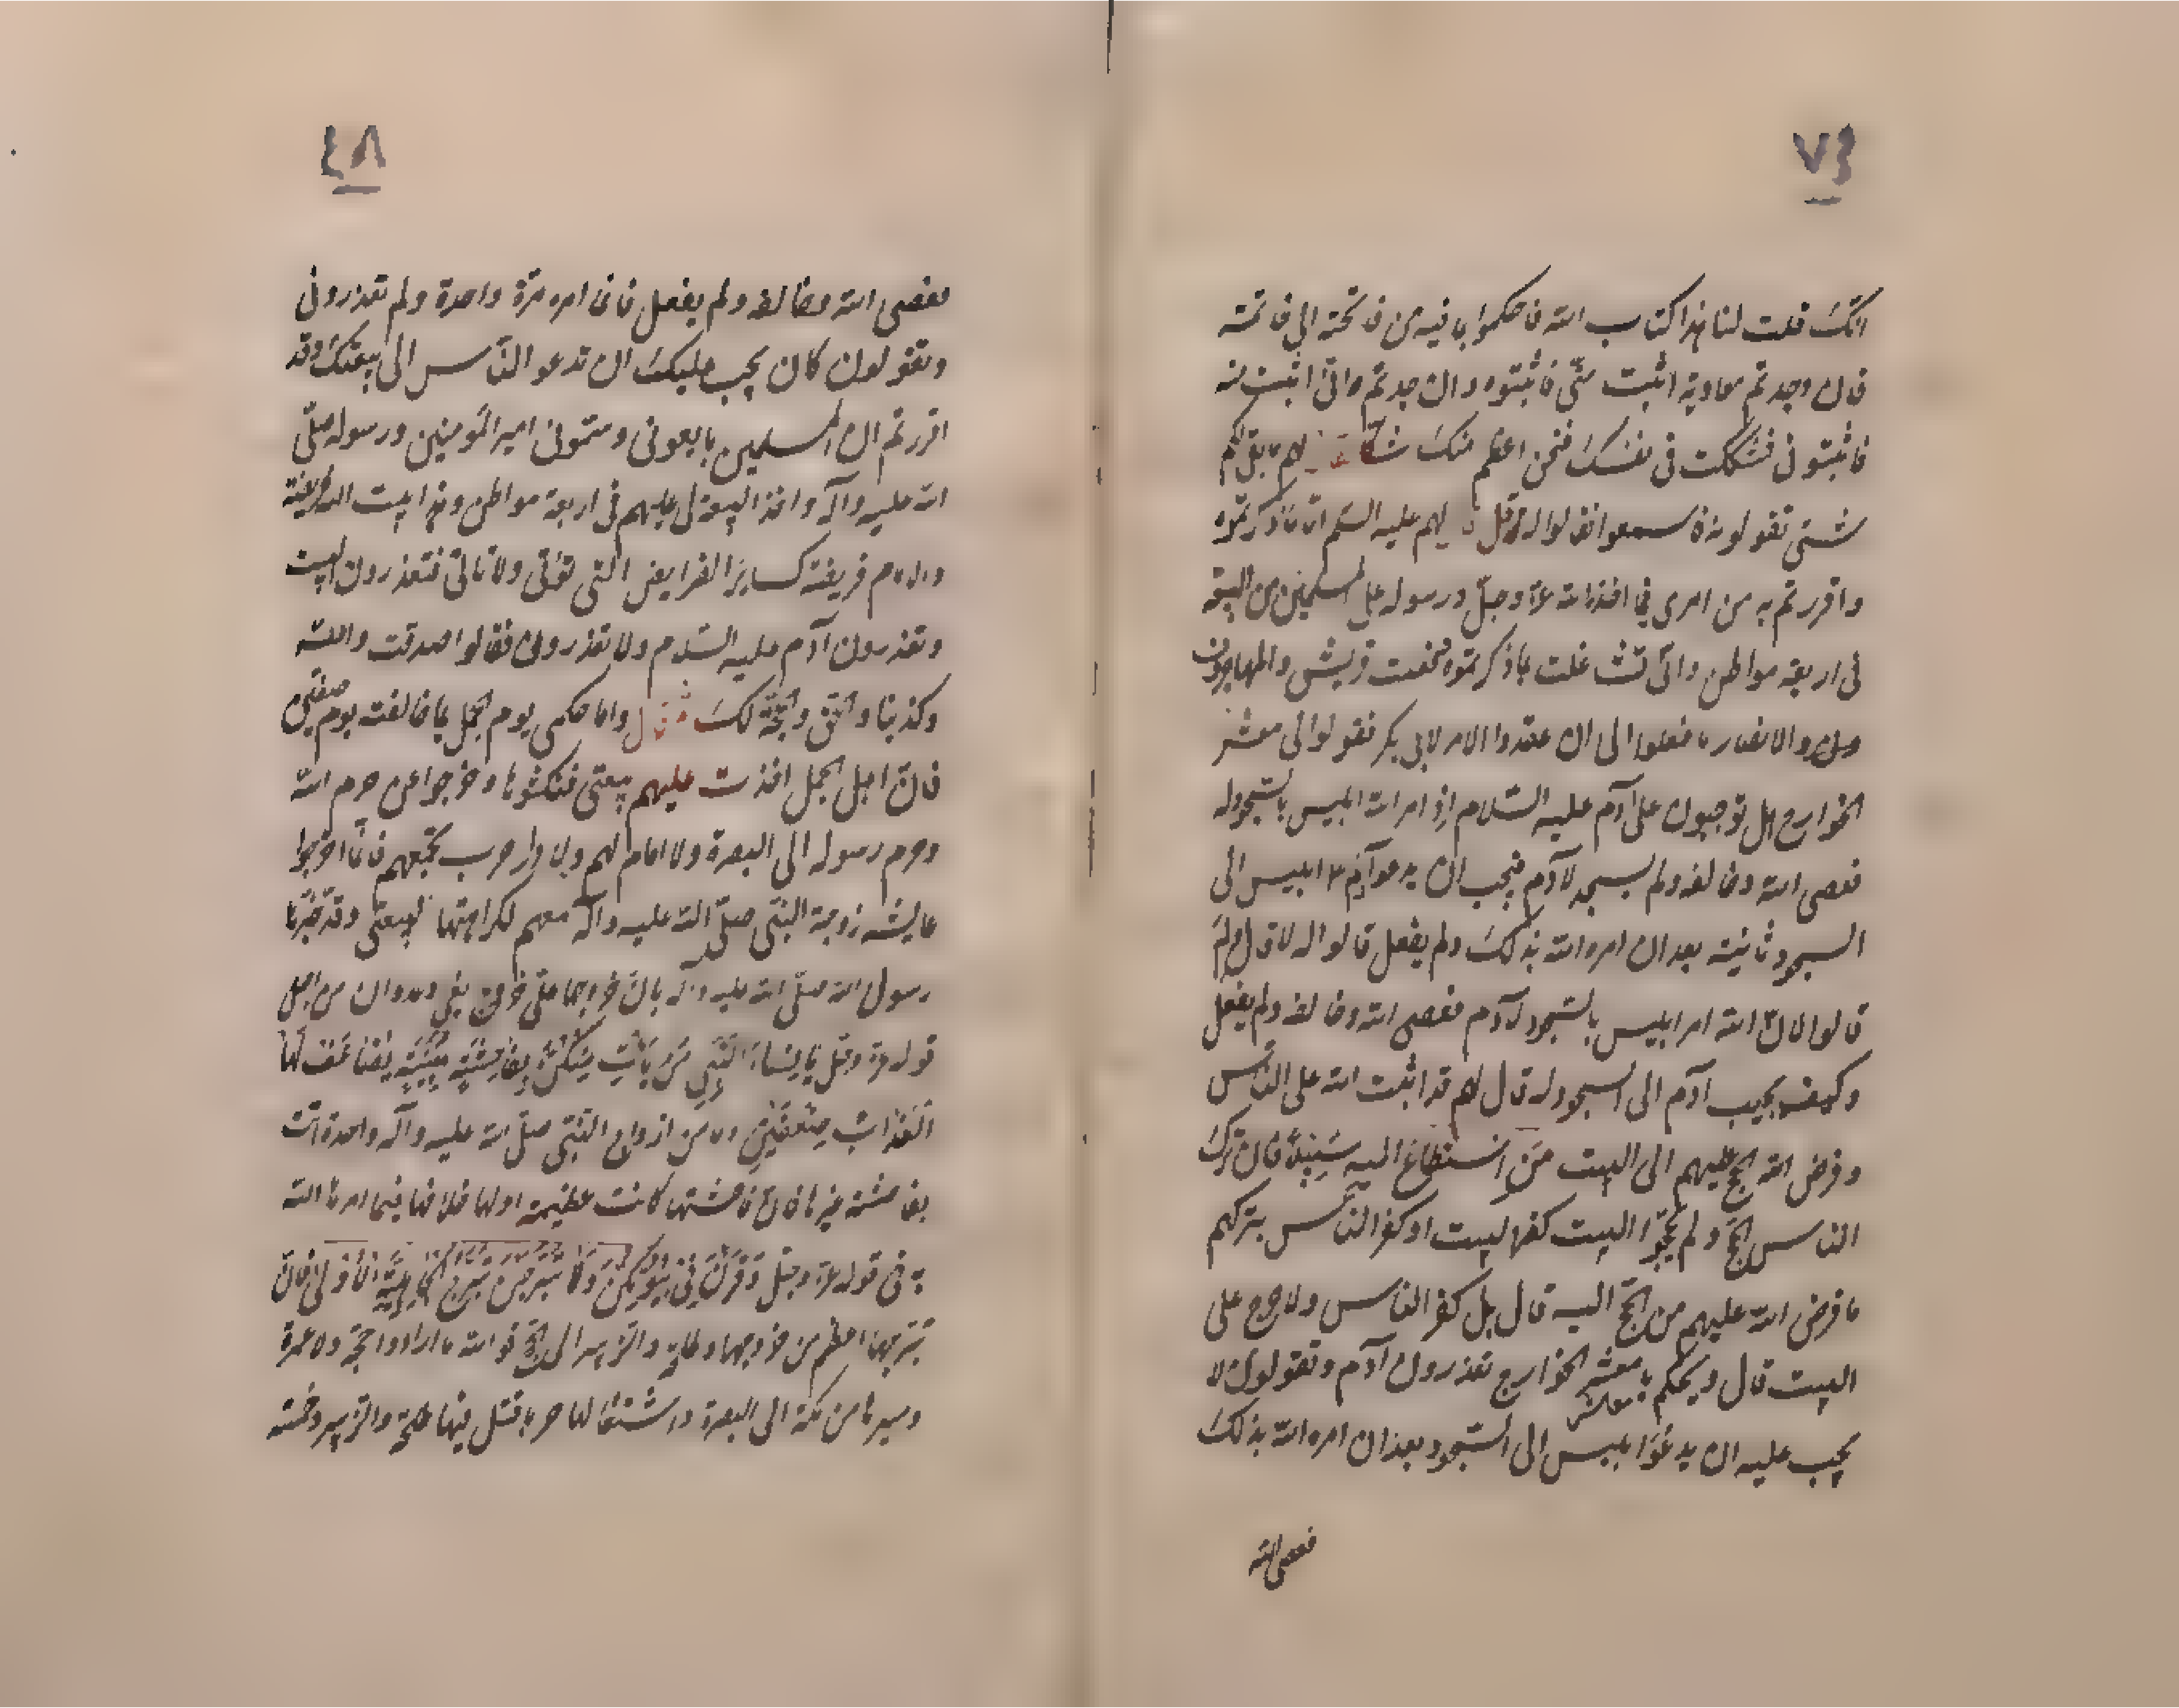 ٤٧
انّك قلت لنا هذا كتاب الله فاحكموا بما فيه من فاتحته الى خاتمته
فان وجدتم معاوية اثبت منّى فاثبتوه وان وجدتم وانّى اثبت منه
فاثبتونى فشككت فى نفسك فنحن اعظم منك شكا لهم ما بقى لكم
شىء تقولونه فاسمعوا لهم عليه السلم انّ ما ذكرتموه
واقررتم به من امرى فى اخذ الله عزّ وجلّ ورسوله على المسلمين من البيعة
فى اربعة مواطن وانّى تشاغلت بما ذكرتموه ففعلت قريش والمهاجرون
والانصار ما فعلوا الى ان عقدوا الامر لابى بكر فقولوا لى معشر
الخوارج هل توجبون على آدم عليه السّلام اذ امر الله ابليس بالسّجود له
فعصى الله وخالفه ولم يسجد لآدم فيجب ان يدعو آدم ابليس الى
السجود ثانية بعد ان امره الله بذلك ولم يفعل قالوا له لا قال ولم
قالوا لانّ الله امر ابليس بالسّجود لآدم فعصى الله وخالفه ولم يفعل
وكيف يجيب آدم الى السجود له قال لهم قد اثبت الله على النّاس
وفرض الله الحج عليهم الى البيت مَن اسْتطاعَ اليه سَبِيلًا فان ترك
الناس الحجّ ولم يحجّوا البيت كفر البيت او كفر النّاس بتركهم
ما فرض الله عليهم من الحجّ اليه قال بل كفر الناس ولا حرج على
البيت قال ويحكم يا معشر الخوارج تعذرون آدم وتقولون لا
معاشر
يجب عليه ان يدعو ابليس الى السّجود بعد ان امره الله بذلك
فعصى الله
٤٨
فعصى الله وخالفه ولم يفعل فانما امره مرّة واحدة ولم تعذرونى
وتقولون كان يجب عليك ان تدعو النّاس الى بيعتك وقد
اقررتم ان المسلمين بايعونى وسمّونى امير المؤمنين ورسوله صلّى
الله عليه وآله واخذ البيعة لى عليهم فى اربعة مواطن وهذا بيت الله فريضة
والامام فريضة كساير الفرايض التى تؤتى ولا تأتى فتعذرون البيت
وتعذرون آدم عليه السّلام ولا تعذرونى فقالوا صدقت والله
وكذبنا والحق والحجّة لك ثم قال واما حكمى يوم الجمل بما خالفته يوم صفّين
فانّ اهل الجمل اخذت عليهم بيعتى فنكثوها وخرجوا من حرم الله
وحرم رسوله الى البصرة ولا امام لهم ولا دار حرب تجمعهم فانّما اخرجوا
عايشه زوجة النبّى صلّى الله عليه وآله معهم لكراهتها لبيعتى وقد خبّرها
رسول الله صلّى الله عليه وآله بانّ خروجها علىّ خروج بغى وعدوان من اجل
قوله عزّ وجلّ يا نِسَاءَ النَّبِيِّ مَن يَأْتِ مِنْكُنَّ بِفَاحِشَةٍ مُبَيِّنَةٍ يُضَاعَفْ لَهَا
الْعَذَابُ ضِعْفَيْنِ وما من ازواج النّبّى صلّى الله عليه وآله واحدة اتت
بفاحشة غيرها فان فاحشتها كانت عظيمة اولها خلافها فيما امرها الله
به فى قوله عزّ وجلّ وَقَرْنَ فِي بُيُوتِكُنَّ وَلَا تَبَرَّجْنَ تَبَرُّجَ الْجَاهِلِيَّةِ الْأُولَى فانّ
تبرّجها اعظم من خروجها وطلحة والزبير الى الحجّ فو الله ما ارادوا حجّة ولا عمرة
وسيرها من مكّة الى البصرة واشتعالها حربا قتل فيها طلحة والزّبير وخمسة